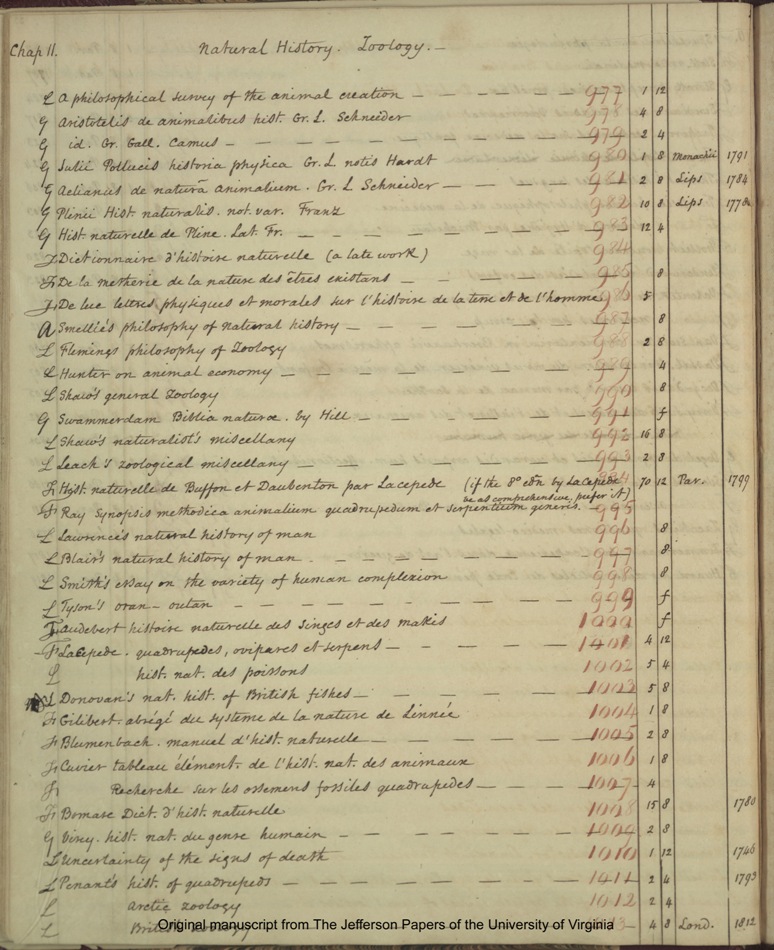 Chap 11. Natural History. Zoology.—
L A philosophical survey of the animal creation — — — — — 977 1 12
G Aristotelis de animalibus hist. Gr. L. Schneider 978 4 8
G id. Gr. Gall. Camus — — — — — 979 2 4
G Julii Pollucis historia physica Gr. L. notis Hardt 980 1 8 Monachii 1791
G Aelianus de naturâ animalium. Gr. L Schneider — — — — 981 2 8 Lips 1784
G Plinii Hist. naturalis. not. var. Franz 982 10 8 Lips 1778
G Hist. naturelle de Pline. Lat. Fr. — — — — — 983 12 4
F Dictionnaire d'histoire naturelle (a late work) 984
F De la metherie de la nature des êtres existans — — — — 985 8
F De luc lettres physiques et morales sur l'histoire de la terre et de l'homme 986 5
A Smellie's philosophy of natural history — — — — — 987 8
L Flemings philosophy of Zoology 988 2 8
L Hunter on animal economy — — — — — 989 4
L Shaw's general Zoology 990 8
G Swammerdam Biblia naturae. by Hill — — — — — 991 f
L Shaw's naturalist's miscellany 992 16 8
L Leach's zoological miscellany — — — — — 993 2 8
F Hist. naturelle de Buffon et Daubenton par Lacepede (if the 8° edn by LaCepede 994 70 12 Par. 1799
be as comprehensive, prefer it)
F Ray Synopsis methodica animalium quadrupedum et serpentium generis. — 995
L Lawrence's natural history of man 996 8
L Blair's natural history of man. — — — — — 997 8
L Smith's essay on the variety of human complexion 998 8
L Tyson's oran-outan — — — — — 999 f
F audebert histoire naturelle des Singes et des makis 1000 f
F LaCepede. quadrupedes, ovipares et serpens — — — — 1001 4 12
L hist. nat. des poissons 1002 5 4
L Donovan's nat. hist. of British fishes — — — — — 1003 5 8
F Gilibert. abregé du système de la nature de Linnée 1004 1 8
F Blumenbach. manuel d'hist. naturelle — — — — — 1005 2 8
F Cuvier tableau élément. de l'hist. nat. des animaux 1006 1 8
F Recherche sur les ossemens fossiles quadrupedes — — — 1007 4
F Bomare Dict. d'hist. naturelle 1008 15 8 1780
G Virey. hist. nat. du genre humain — — — — — 1009 2 8
L Uncertainty of the signs of death 1010 1 12 1746
L Penant's hist. of quadrupeds — — — — — 1011 2 4 1793
L Arctic zoology 1012 2 4
L British zoology 1013 4 8 Lond. 1812
Original manuscript from The Jefferson Papers of the University of Virginia